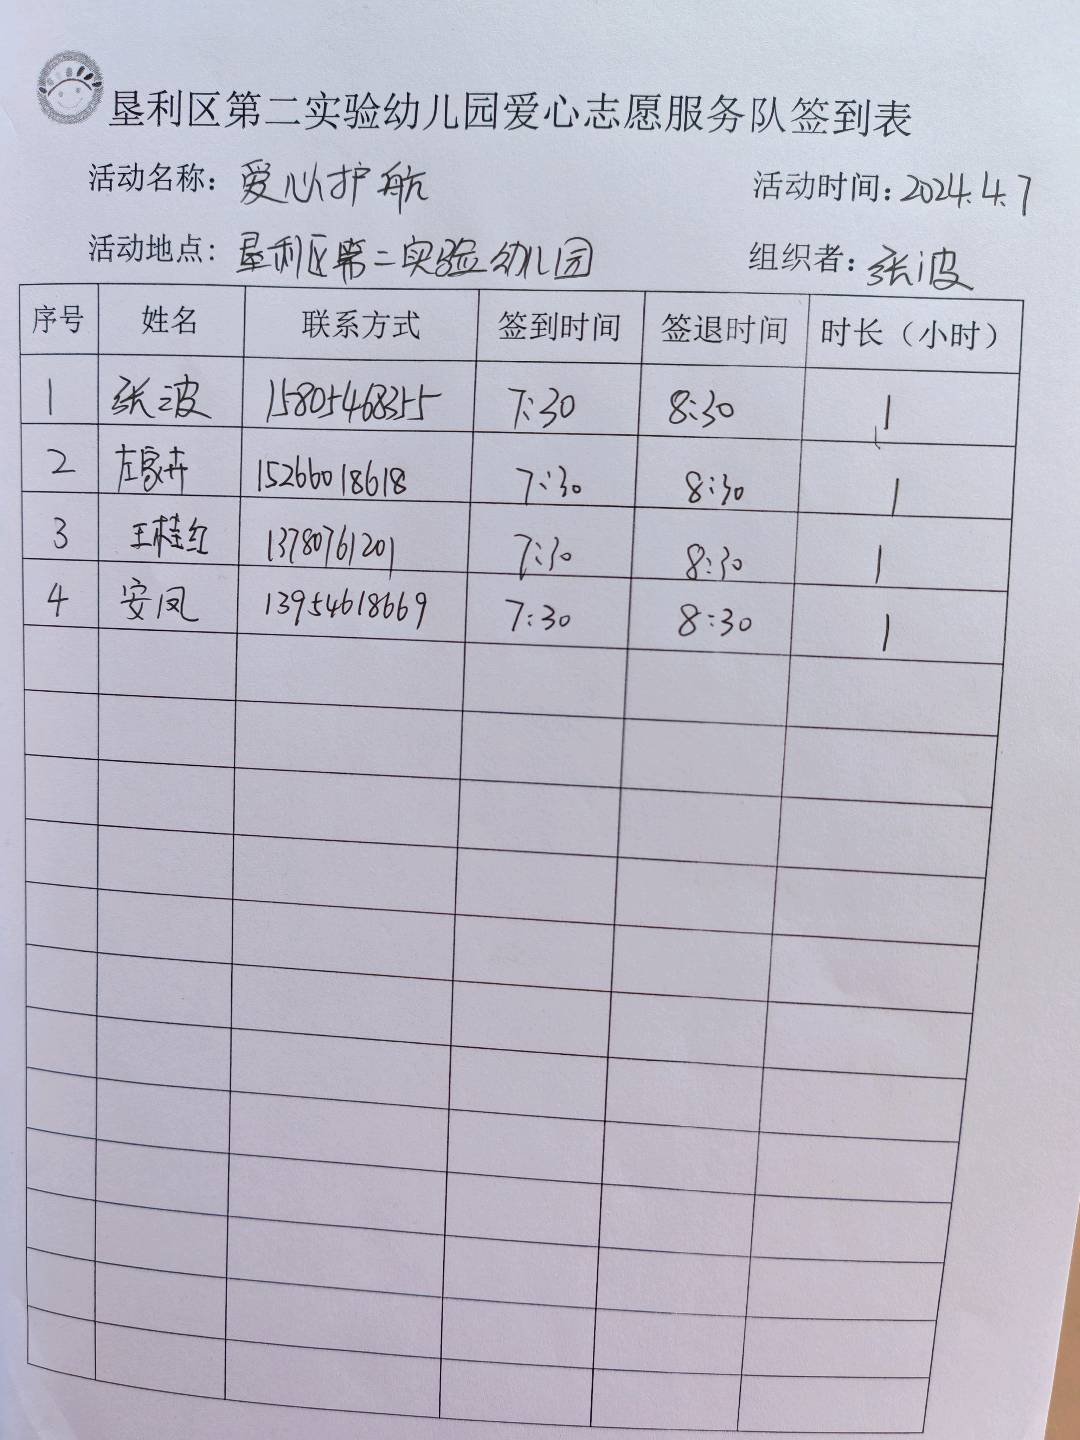 垦利区第二实验幼儿园爱心志愿服务队签到表
活动名称：爱心护航 活动时间：2024.4.7
活动地点：垦利区第二实验幼儿园 组织者：张波
序号 姓名 联系方式 签到时间 签退时间 时长（小时）
1 张波 15805468355 7:30 8:30 1
2 左家卉 15266018618 7:30 8:30 1
3 王桂红 13780761201 7:30 8:30 1
4 安凤 13954618669 7:30 8:30 1